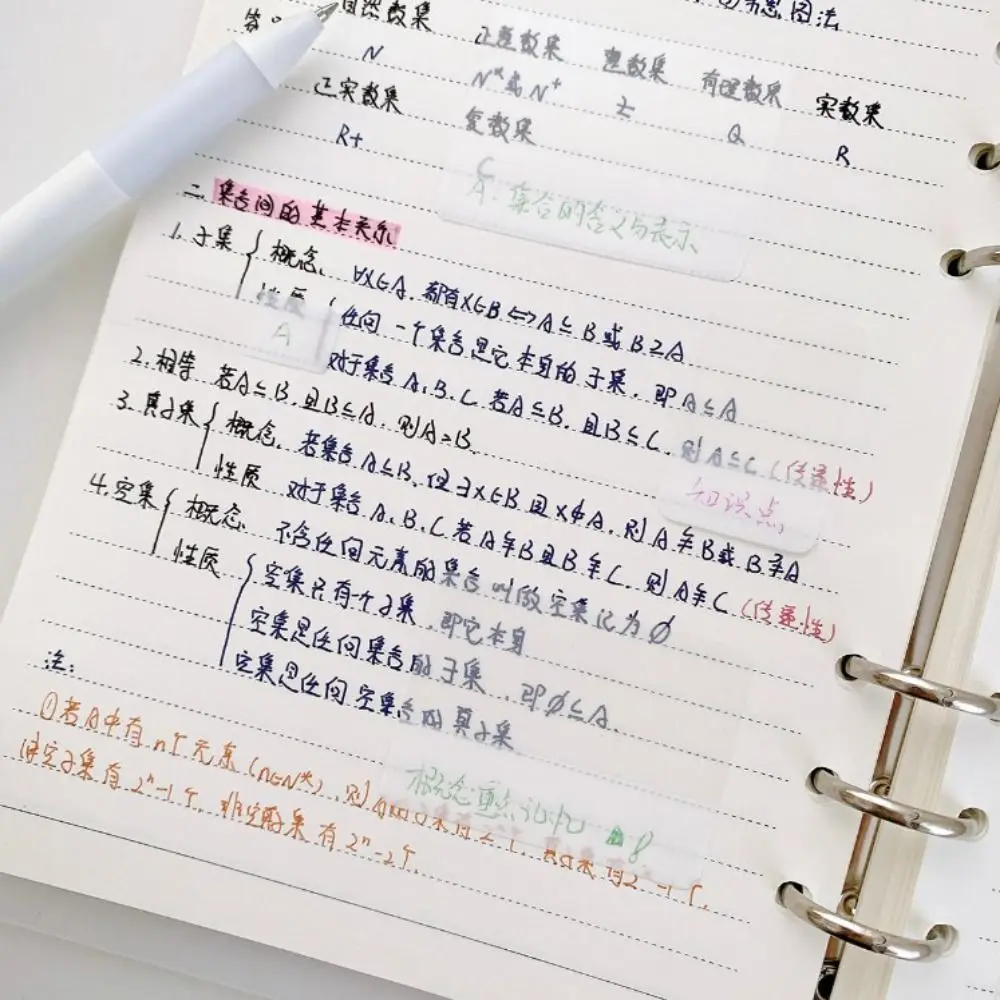 思图法
自然数集 正整数集 整数集 有理数集 实数集
N N*或N⁺ Z Q R
正实数集 复数集
R+ C
A:集合的含义与表示
二.集合间的基本表示
1.子集 概念、∀x∈A,都有x∈B⇔A⊆B或B⊇A
性质 任何一个集合是它本身的子集,即A⊆A
A
对于集合A、B、C,若A⊆B,且B⊆C,则A⊆C(传递性)
2.相等 若A⊆B,且B⊆A,则A=B
3.真子集 概念、若集合A⊆B,但∃x∈B且x∉A,则A⫋B或B⫌A
知识点
性质 对于集合A、B、C,若A⫋B且B⫋C,则A⫋C(传递性)
4.空集 概念、不含任何元素的集合叫做空集记为∅
性质 空集只有个子集,即它本身
空集是任何集合的子集,即∅⊆A
空集是任何空集合的真子集
注:
①若A中有n个元素(n∈N*),则
概念重点记忆
子集有2ⁿ-1个,非空 集有2ⁿ-2个.